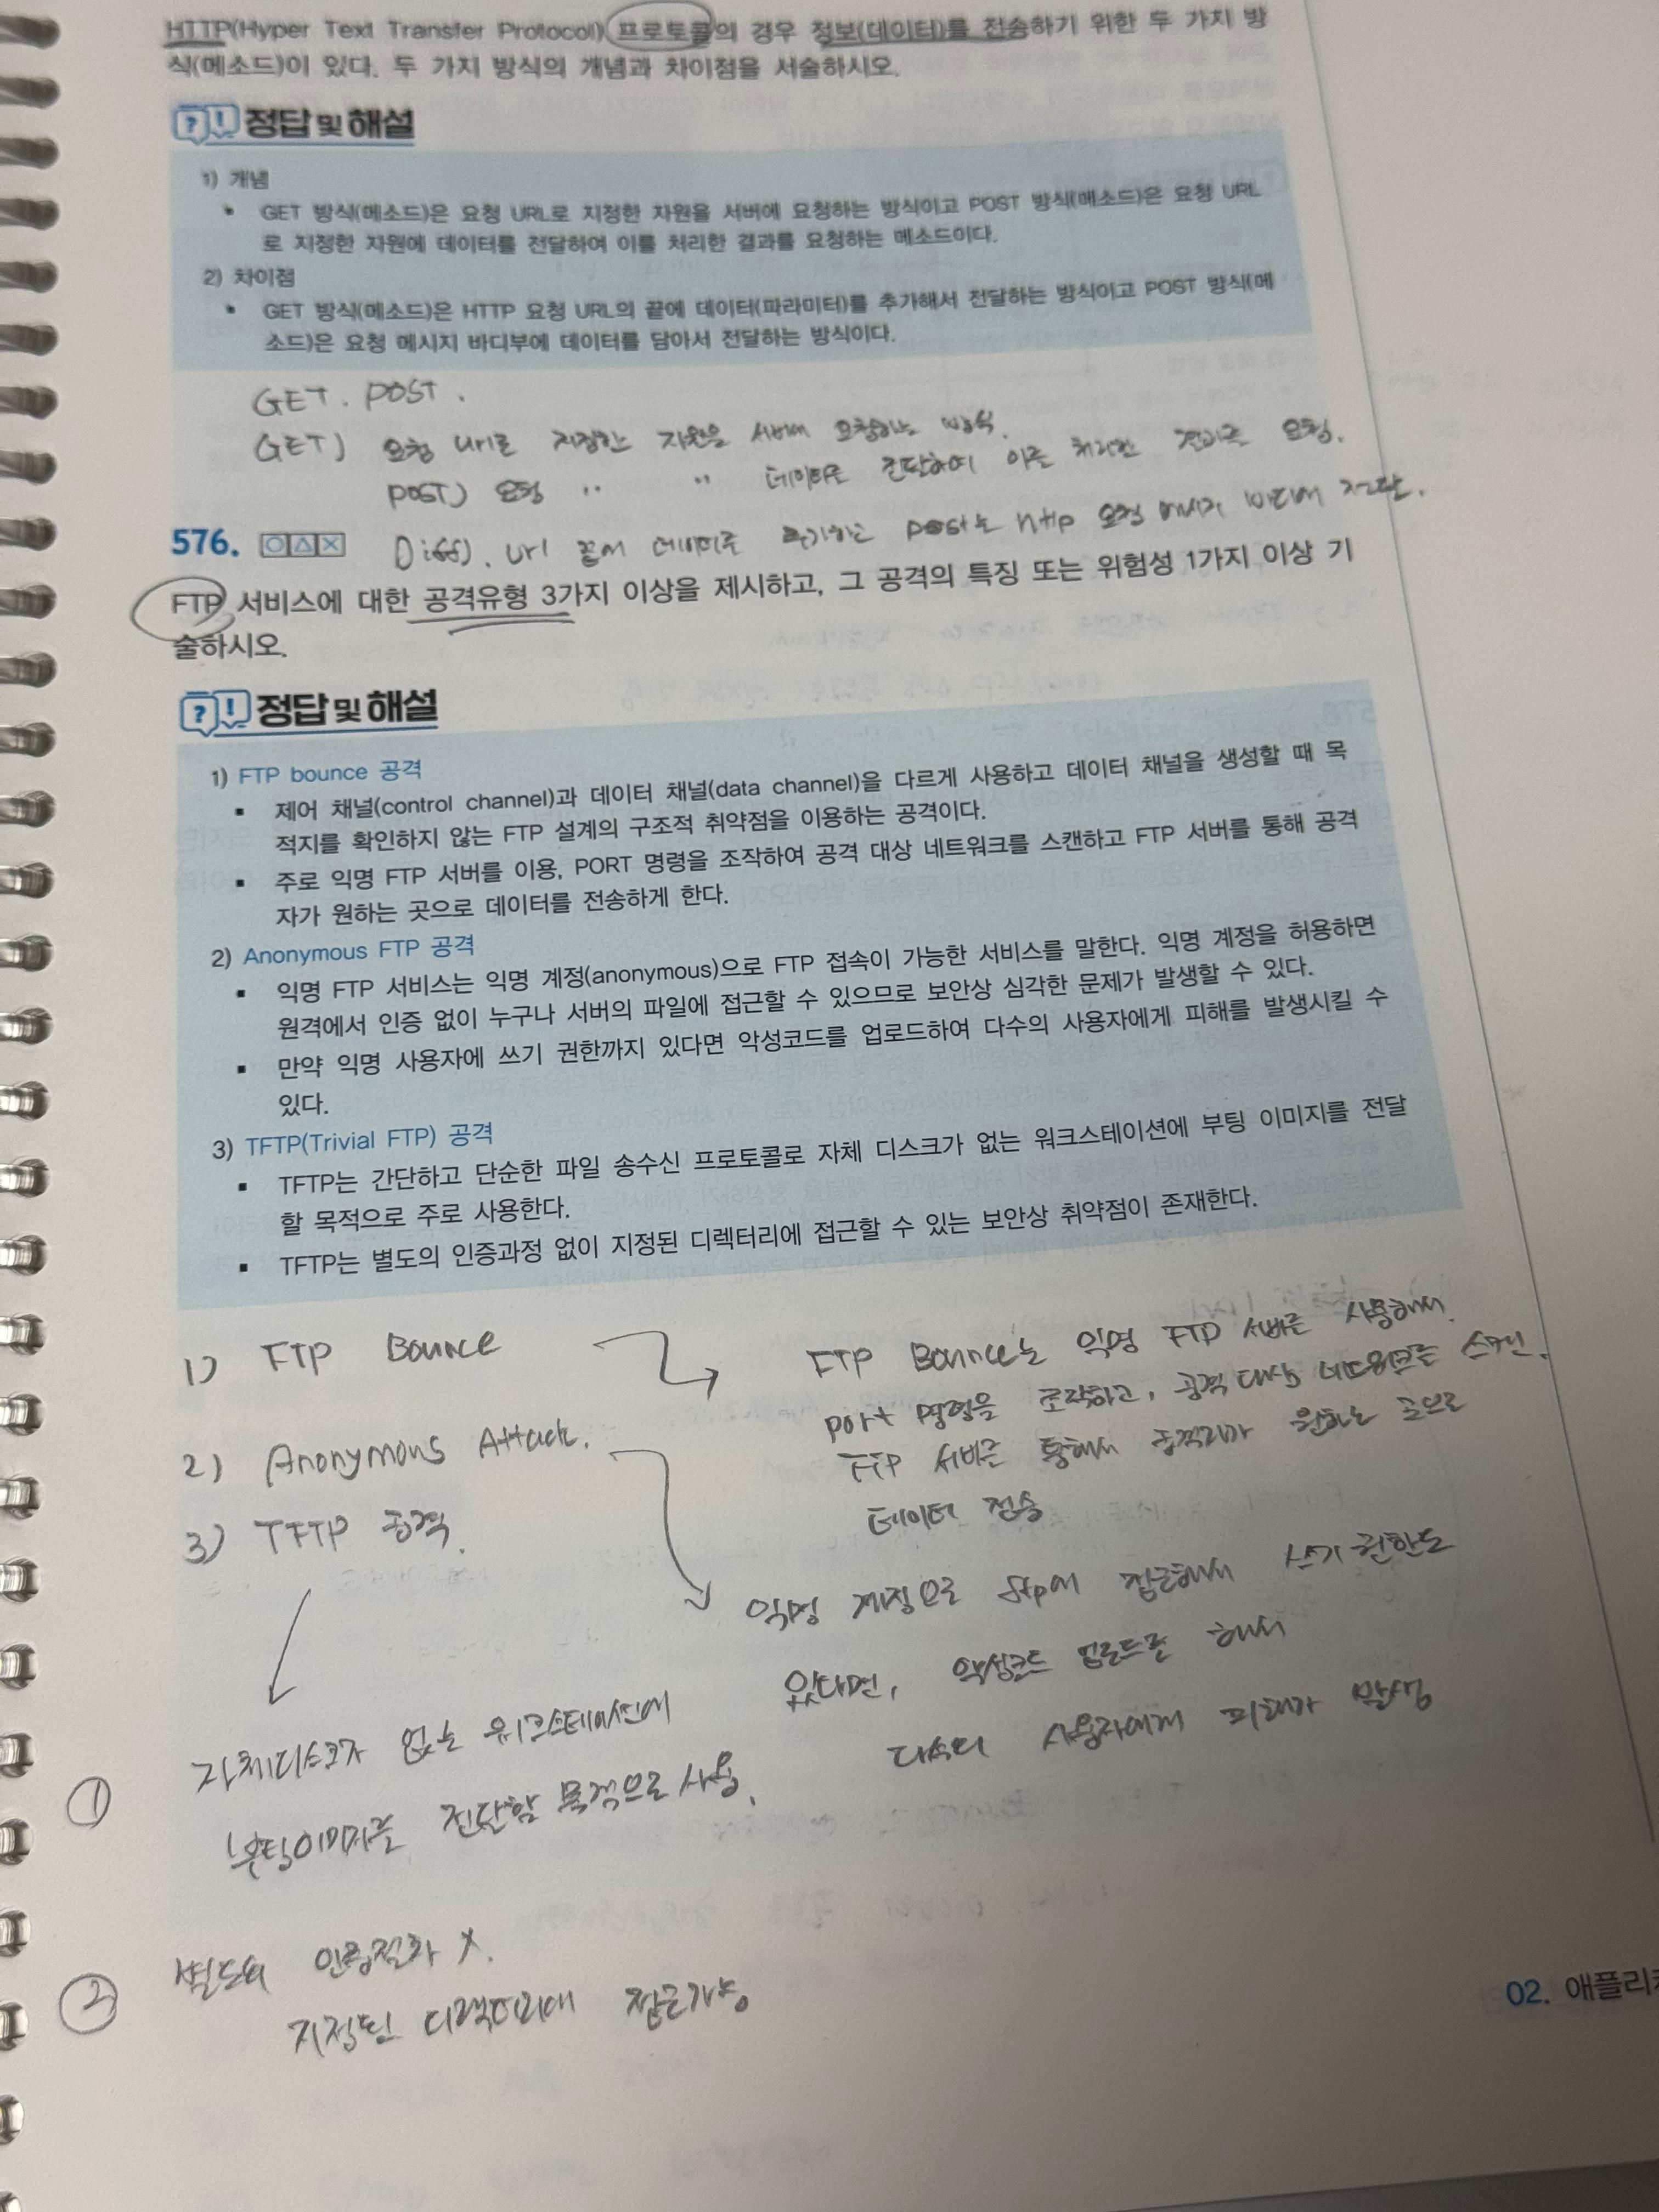 HTTP(Hyper Text Transfer Protocol) 프로토콜의 경우 정보(데이터)를 전송하기 위한 두 가지 방
식(메소드)이 있다. 두 가지 방식의 개념과 차이점을 서술하시오.
?! 정답 및 해설
1) 개념
▪ GET 방식(메소드)은 요청 URL로 지정한 자원을 서버에 요청하는 방식이고 POST 방식(메소드)은 요청 URL
로 지정한 자원에 데이터를 전달하여 이를 처리한 결과를 요청하는 메소드이다.
2) 차이점
▪ GET 방식(메소드)은 HTTP 요청 URL의 끝에 데이터(파라미터)를 추가해서 전달하는 방식이고 POST 방식(메
소드)은 요청 메시지 바디부에 데이터를 담아서 전달하는 방식이다.
GET. POST.
GET) 요청 url로 지정한 자원을 서버에 요청하는 방식.
POST) 요청 '' '' 데이터를 전달하여 이를 처리한 결과를 요청.
Diff). url 끝에 데이터를 추가하고 post는 http 요청 메시지 바디에 전달.
576. ○△×
FTP 서비스에 대한 공격유형 3가지 이상을 제시하고, 그 공격의 특징 또는 위험성 1가지 이상 기
술하시오.
?! 정답 및 해설
1) FTP bounce 공격
▪ 제어 채널(control channel)과 데이터 채널(data channel)을 다르게 사용하고 데이터 채널을 생성할 때 목
적지를 확인하지 않는 FTP 설계의 구조적 취약점을 이용하는 공격이다.
▪ 주로 익명 FTP 서버를 이용, PORT 명령을 조작하여 공격 대상 네트워크를 스캔하고 FTP 서버를 통해 공격
자가 원하는 곳으로 데이터를 전송하게 한다.
2) Anonymous FTP 공격
▪ 익명 FTP 서비스는 익명 계정(anonymous)으로 FTP 접속이 가능한 서비스를 말한다. 익명 계정을 허용하면
원격에서 인증 없이 누구나 서버의 파일에 접근할 수 있으므로 보안상 심각한 문제가 발생할 수 있다.
▪ 만약 익명 사용자에 쓰기 권한까지 있다면 악성코드를 업로드하여 다수의 사용자에게 피해를 발생시킬 수
있다.
3) TFTP(Trivial FTP) 공격
▪ TFTP는 간단하고 단순한 파일 송수신 프로토콜로 자체 디스크가 없는 워크스테이션에 부팅 이미지를 전달
할 목적으로 주로 사용한다.
▪ TFTP는 별도의 인증과정 없이 지정된 디렉터리에 접근할 수 있는 보안상 취약점이 존재한다.
1) FTP Bounce
FTP Bounce는 익명 FTP 서버를 사용해서.
port 명령을 조작하고, 공격 대상 네트워크를 스캔.
FTP 서버를 통해서 공격자가 원하는 곳으로
데이터 전송
2) Anonymous Attack.
3) TFTP 공격.
익명 계정으로 ftp에 접근해서 쓰기 권한도
있다면, 악성코드 업로드를 해서
다수의 사용자에게 피해가 발생
① 자체디스크가 없는 워크스테이션에
부팅이미지를 전달할 목적으로 사용.
② 별도의 인증절차 X.
지정된 디렉터리에 접근가능
02. 애플리